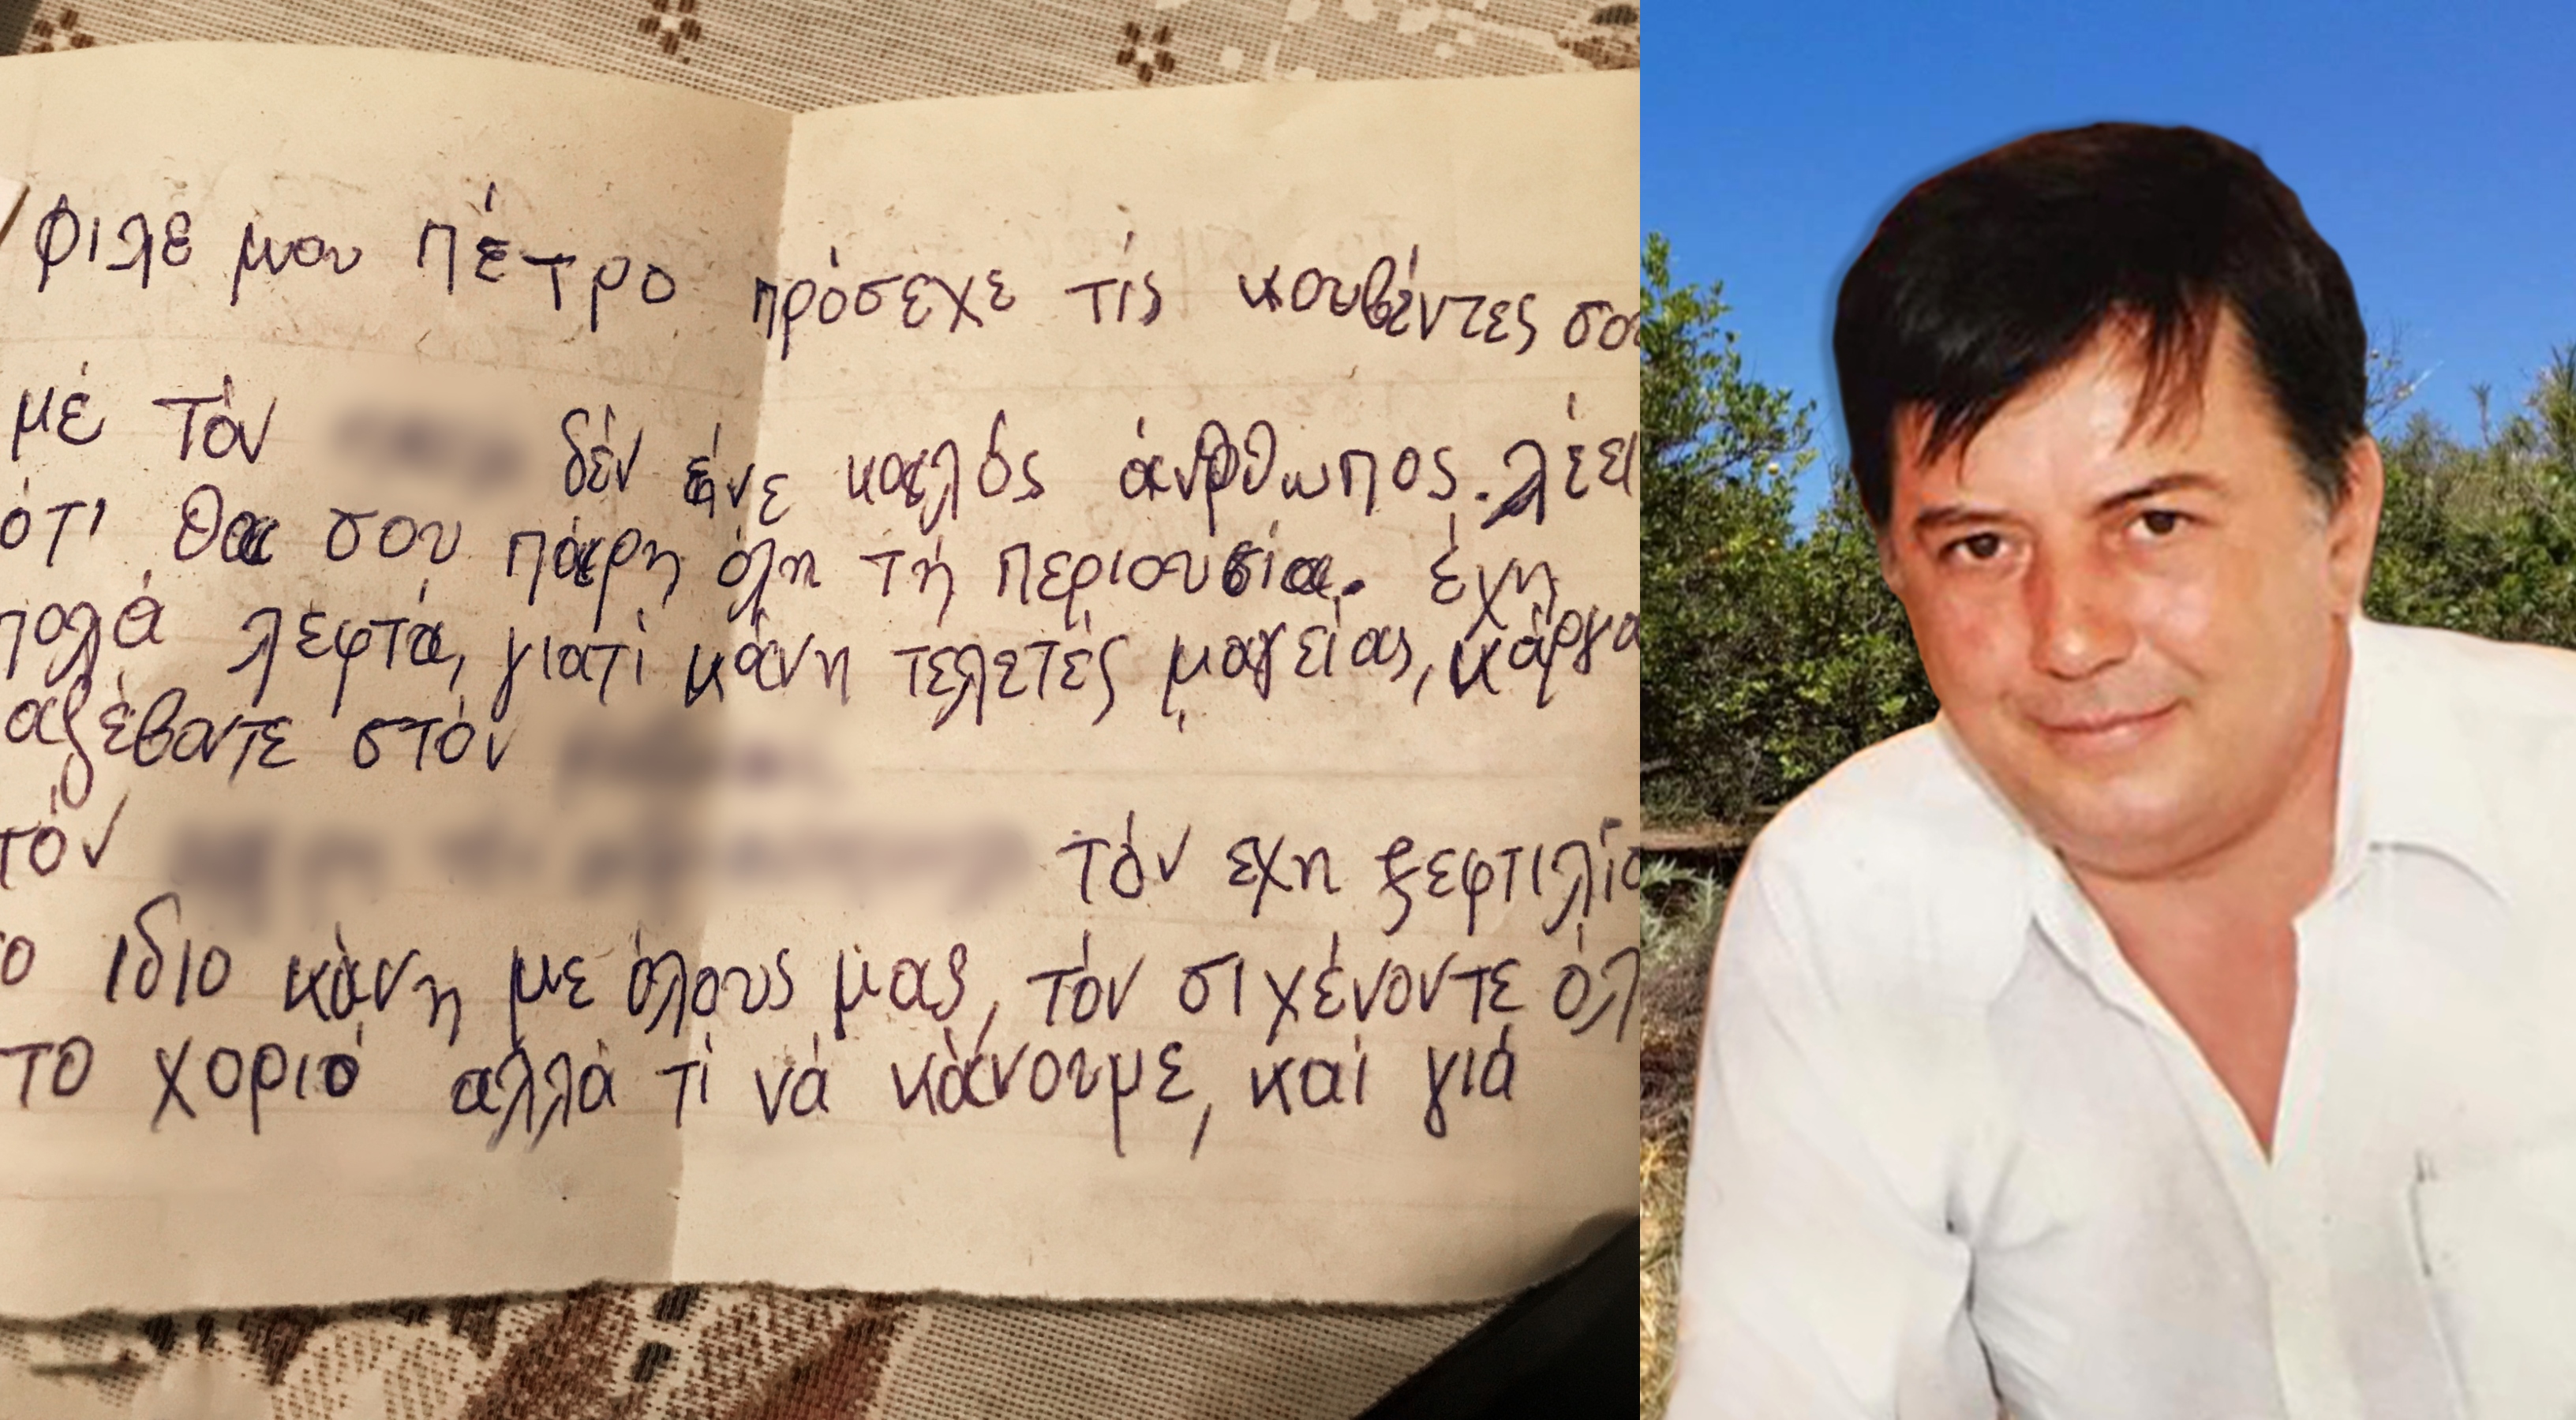 φιλε μου Πέτρο πρόσεχε τίς κουβέντες σου
μέ τόν δέν είνε καλός άνθρωπος. λέει
ότι θα σου πάρη όλη τή περιουσία. έχη
πολά λεφτά, γιατί κάνη τελετές μαγείας, κάργα
αξέβατε στόν
τόν τόν εχη ξεφτιλίσ
ο ιδιο κάνη με όλους μας, τόν σιχένοντε όλ
το χοριό αλλά τί νά κάνουμε, καί γιά